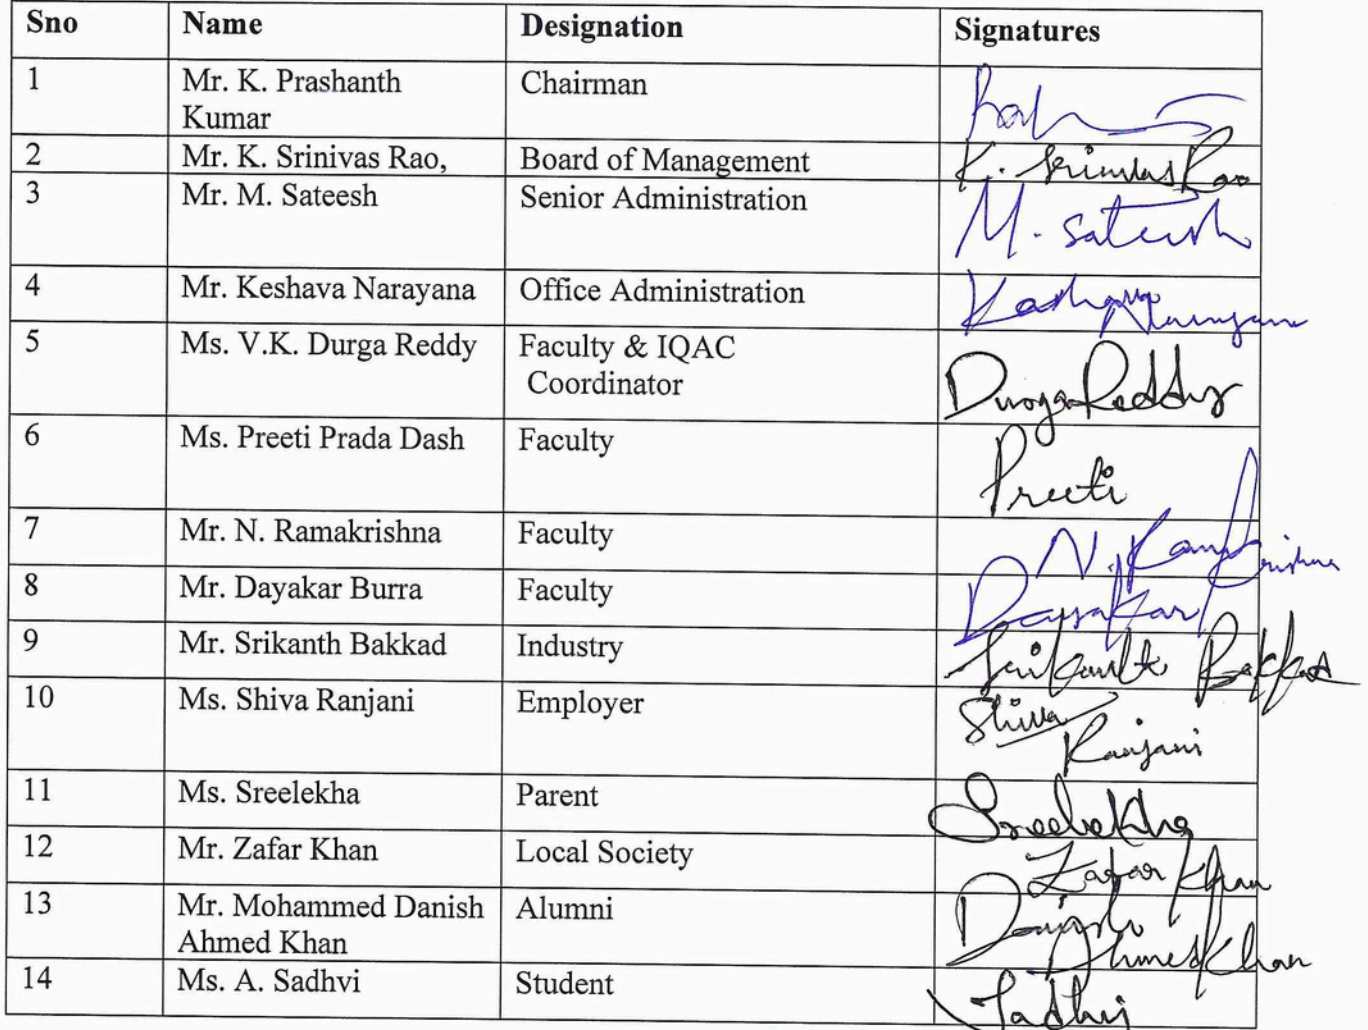 Sno Name Designation Signatures
1 Mr. K. Prashanth Chairman
Kumar
2 Mr. K. Srinivas Rao, Board of Management K. Srinivas Rao
3 Mr. M. Sateesh Senior Administration M. Sateesh
4 Mr. Keshava Narayana Office Administration
5 Ms. V.K. Durga Reddy Faculty & IQAC Durga Reddy
Coordinator
6 Ms. Preeti Prada Dash Faculty Preeti
7 Mr. N. Ramakrishna Faculty N. Ramakrishna
8 Mr. Dayakar Burra Faculty Dayakar
9 Mr. Srikanth Bakkad Industry Srikanth Bakkad
10 Ms. Shiva Ranjani Employer Shiva
Ranjani
11 Ms. Sreelekha Parent Sreelekha
12 Mr. Zafar Khan Local Society Zafar Khan
13 Mr. Mohammed Danish Alumni Danish
Ahmed Khan Ahmed Khan
14 Ms. A. Sadhvi Student Sadhvi